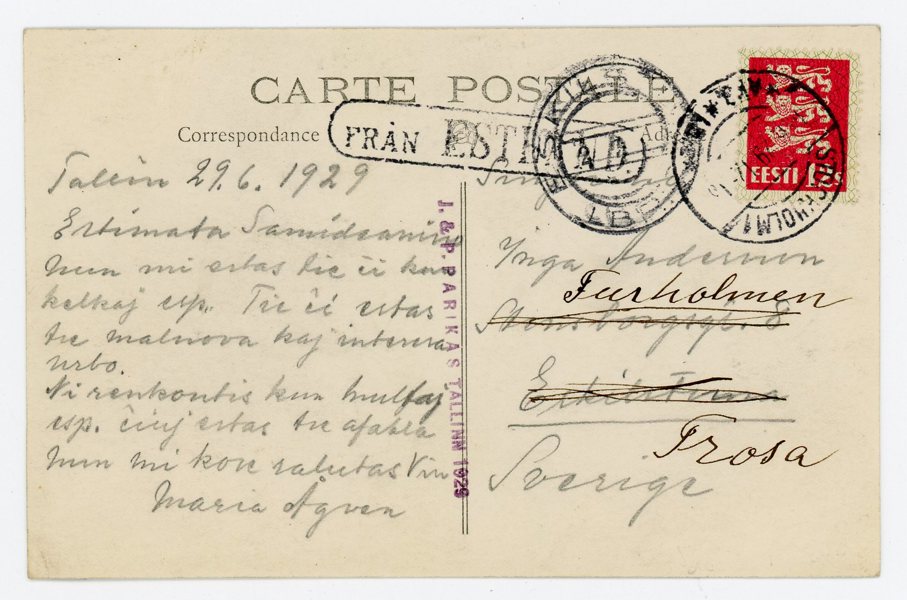 CARTE POSTALE
Correspondance
FRÅN ESTLAND
EESTI
STOCKHOLM 1
Tallin 29.6. 1929
Estimata Samideanino
Nun mi estas tie ĉi kun
kelkaj esp. Tie ĉi estas
tre malnova kaj interesa
urbo.
Ni renkontis kun multaj
esp. ĉiuj estas tre afabla
Nun mi kore salutas Vin
Maria Ågren
J. & P. PARIKAS TALLINN 1929
Inga Andersson
Furholmen
Eskilstuna
Trosa
Sverige